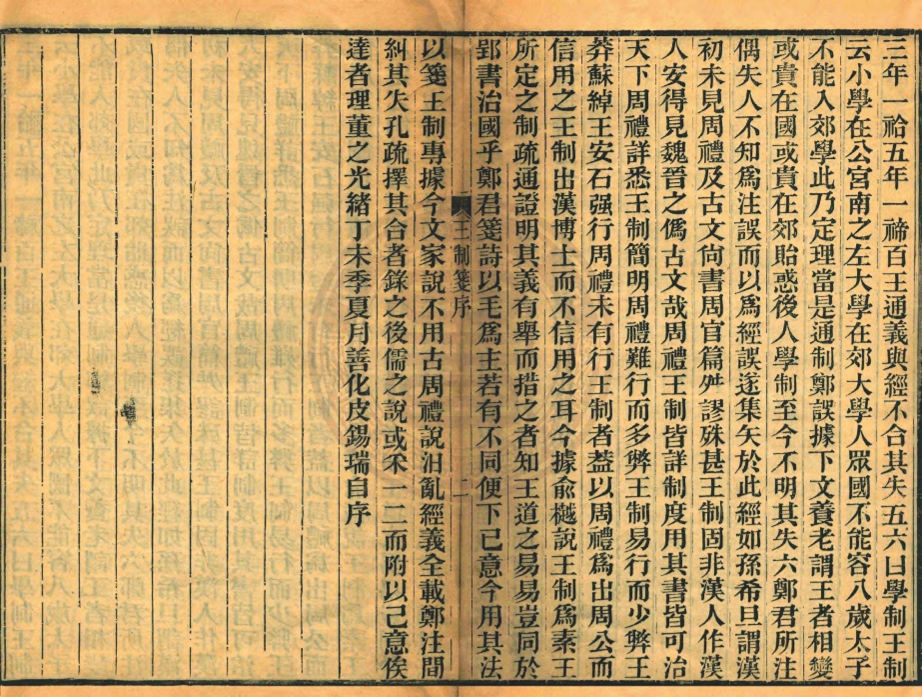 三年一祫五年一禘百王通義與經不合其失五六曰學制王制
云小學在公宮南之左大學在郊大學人眾國不能容八歲太子
不能入郊學此乃定理當是通制鄭誤據下文養老謂王者相變
或貴在國或貴在郊貽惑後人學制至今不明其失六鄭君所注
偶失人不知為注誤而以為經誤遂集矢於此經如孫希旦謂漢
初未見周禮及古文尚書周官篇舛謬殊甚王制固非漢人作漢
人安得見魏晉之僞古文哉周禮王制皆詳制度用其書皆可治
天下周禮詳悉王制簡明周禮難行而多弊王制易行而少弊王
莽蘇綽王安石强行周禮未有行王制者葢以周禮為出周公而
信用之王制出漢博士而不信用之耳今據俞樾說王制為素王
所定之制疏通證明其義有舉而措之者知王道之易易豈同於
郢書治國乎鄭君箋詩以毛為主若有不同便下已意今用其法
王制箋序
二
以箋王制專據今文家說不用古周禮說汨亂經義全載鄭注間
糾其失孔疏擇其合者錄之後儒之說或采一二而附以己意俟
達者理董之光緒丁未季夏月善化皮錫瑞自序